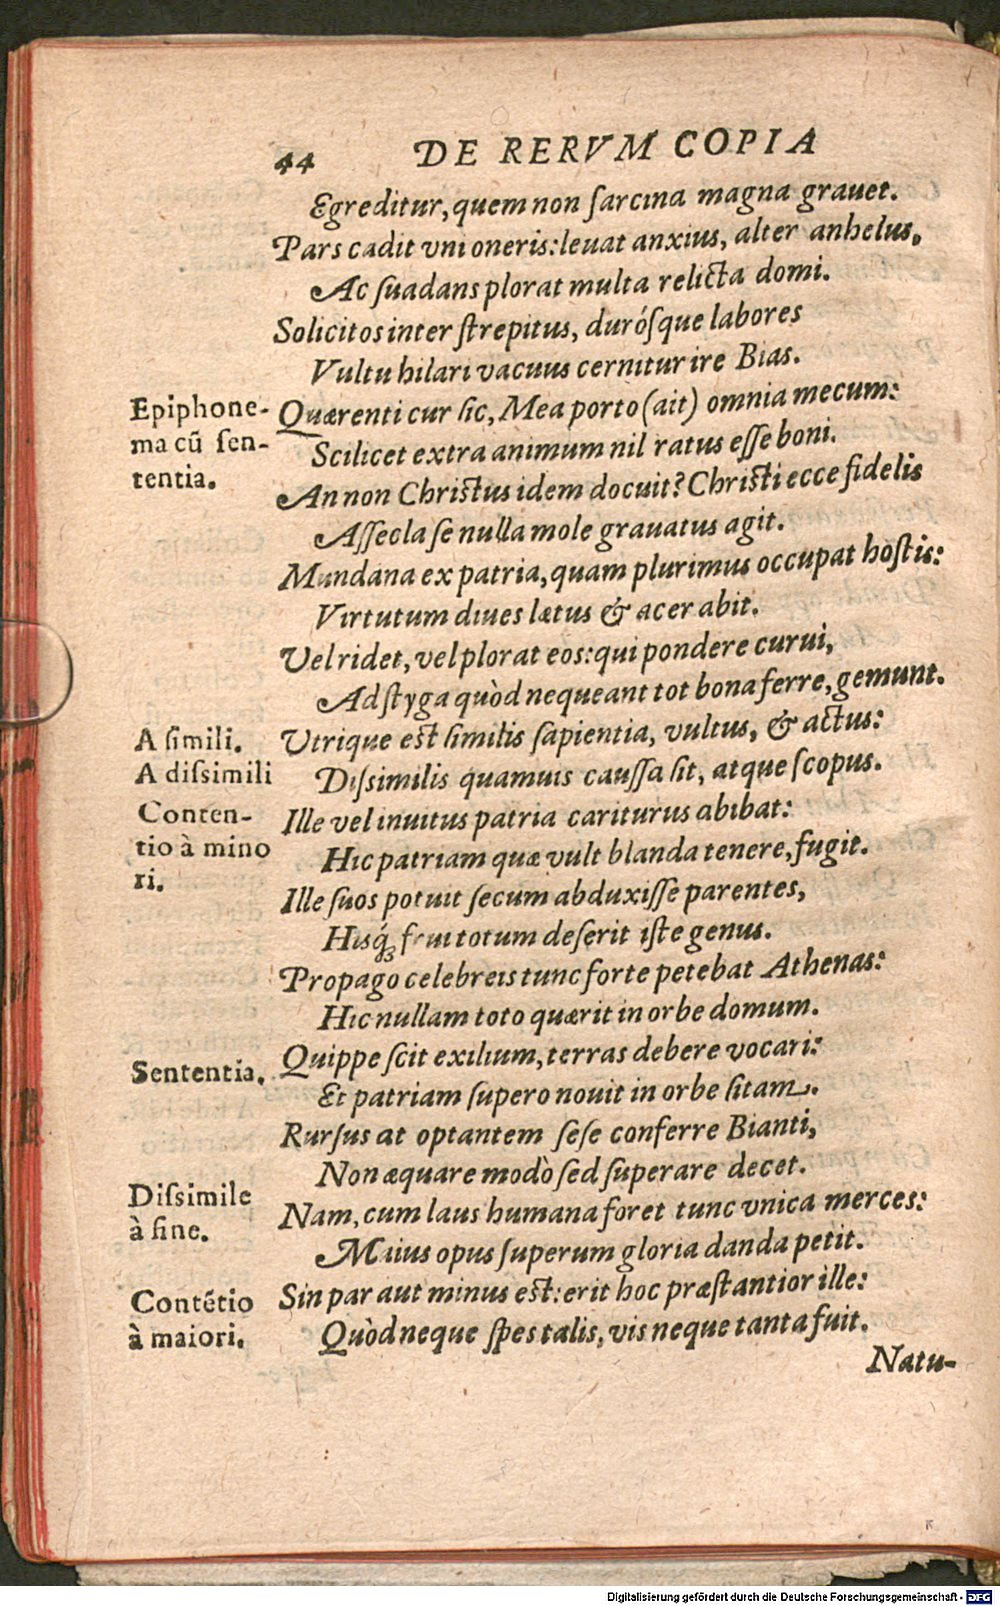 44 DE RERVM COPIA
Egreditur, quem non ſarcina magna grauet.
Pars cadit vni oneris: leuat anxius, alter anhelus,
Ac ſuadans plorat multa relicta domi.
Solicitos inter ſtrepitus, duróſque labores
Vultu hilari vacuus cernitur ire Bias.
Epiphone-
ma cū ſen-
tentia.
Quærenti cur ſic, Mea porto (ait) omnia mecum:
Scilicet extra animum nil ratus eſſe boni.
An non Chriſtus idem docuit? Chriſti ecce fidelis
Aſſecla ſe nulla mole grauatus agit.
Mundana ex patria, quam plurimus occupat hoſtis:
Virtutum diues lætus & acer abit.
Vel ridet, vel plorat eos: qui pondere curui,
Ad ſtyga quòd nequeant tot bona ferre, gemunt.
A ſimili.
A diſsimili
Vtrique eſt ſimilis ſapientia, vultus, & actus:
Diſsimilis quamuis cauſſa ſit, atque ſcopus.
Conten-
tio à mino
ri.
Ille vel inuitus patria cariturus abibat:
Hic patriam quæ vult blanda tenere, fugit.
Ille ſuos potuit ſecum abduxiſſe parentes,
Hisq́; frui totum deſerit iſte genus.
Propago celebreis tunc forte petebat Athenas:
Hic nullam toto quærit in orbe domum.
Sententia.
Quippe ſcit exilium, terras debere vocari:
Et patriam ſupero nouit in orbe ſitam.
Rurſus at optantem ſeſe conferre Bianti,
Non æquare modò ſed ſuperare decet.
Diſsimile
à fine.
Nam, cum laus humana foret tunc vnica merces:
Maius opus ſuperum gloria danda petit.
Contētio
à maiori.
Sin par aut minus eſt: erit hoc præſtantior ille:
Quòd neque ſpes talis, vis neque tanta fuit.
Natu-
Digitalisierung gefördert durch die Deutsche Forschungsgemeinschaft - DFG